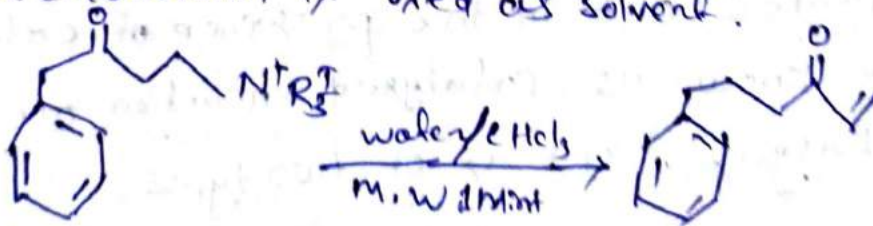 used as solvent.
O
N⁺R₃I
O
water/CHCl₃
M.W 1 Mint